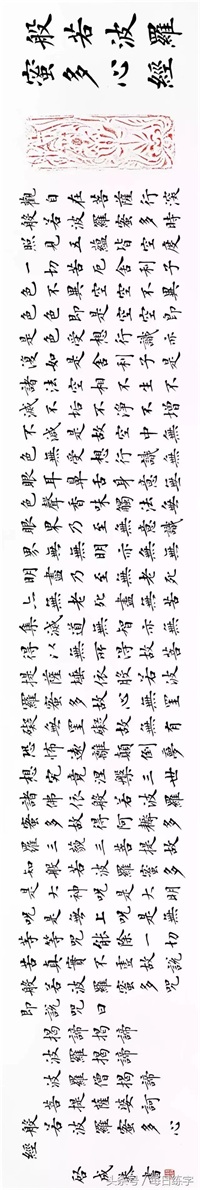 般若波羅
蜜多心經
觀自在菩薩行深
般若波羅蜜多時
照見五蘊皆空度
一切苦厄舍利子
色不異空空不異
色色即是空空即
是色受想行識亦
復如是舍利子是
諸法空相不生不
滅不垢不淨不增
不減是故空中無
色無受想行識無
眼耳鼻舌身意無
色聲香味觸法無
眼界乃至無意識
界無無明亦無無
明盡乃至無老死
亦無老死盡無苦
集滅道無智亦無
得以無所得故菩
提薩埵依般若波
羅蜜多故心無罣
礙無罣礙故無有
恐怖遠離顛倒夢
想究竟涅槃三世
諸佛依般若波羅
蜜多故得阿耨多
羅三藐三菩提故
知般若波羅蜜多
是大神咒是大明
咒是無上咒是無
等等咒能除一切
苦真實不虛故說
般若波羅蜜多咒
即說咒曰
揭諦揭諦
波羅揭諦
波羅僧揭諦
菩提薩婆訶
般若波羅蜜多心
經
啟成恭書
头条号/每日练字